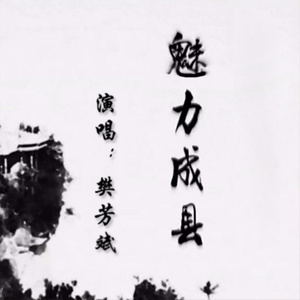 魅力成县
演唱：樊芳斌